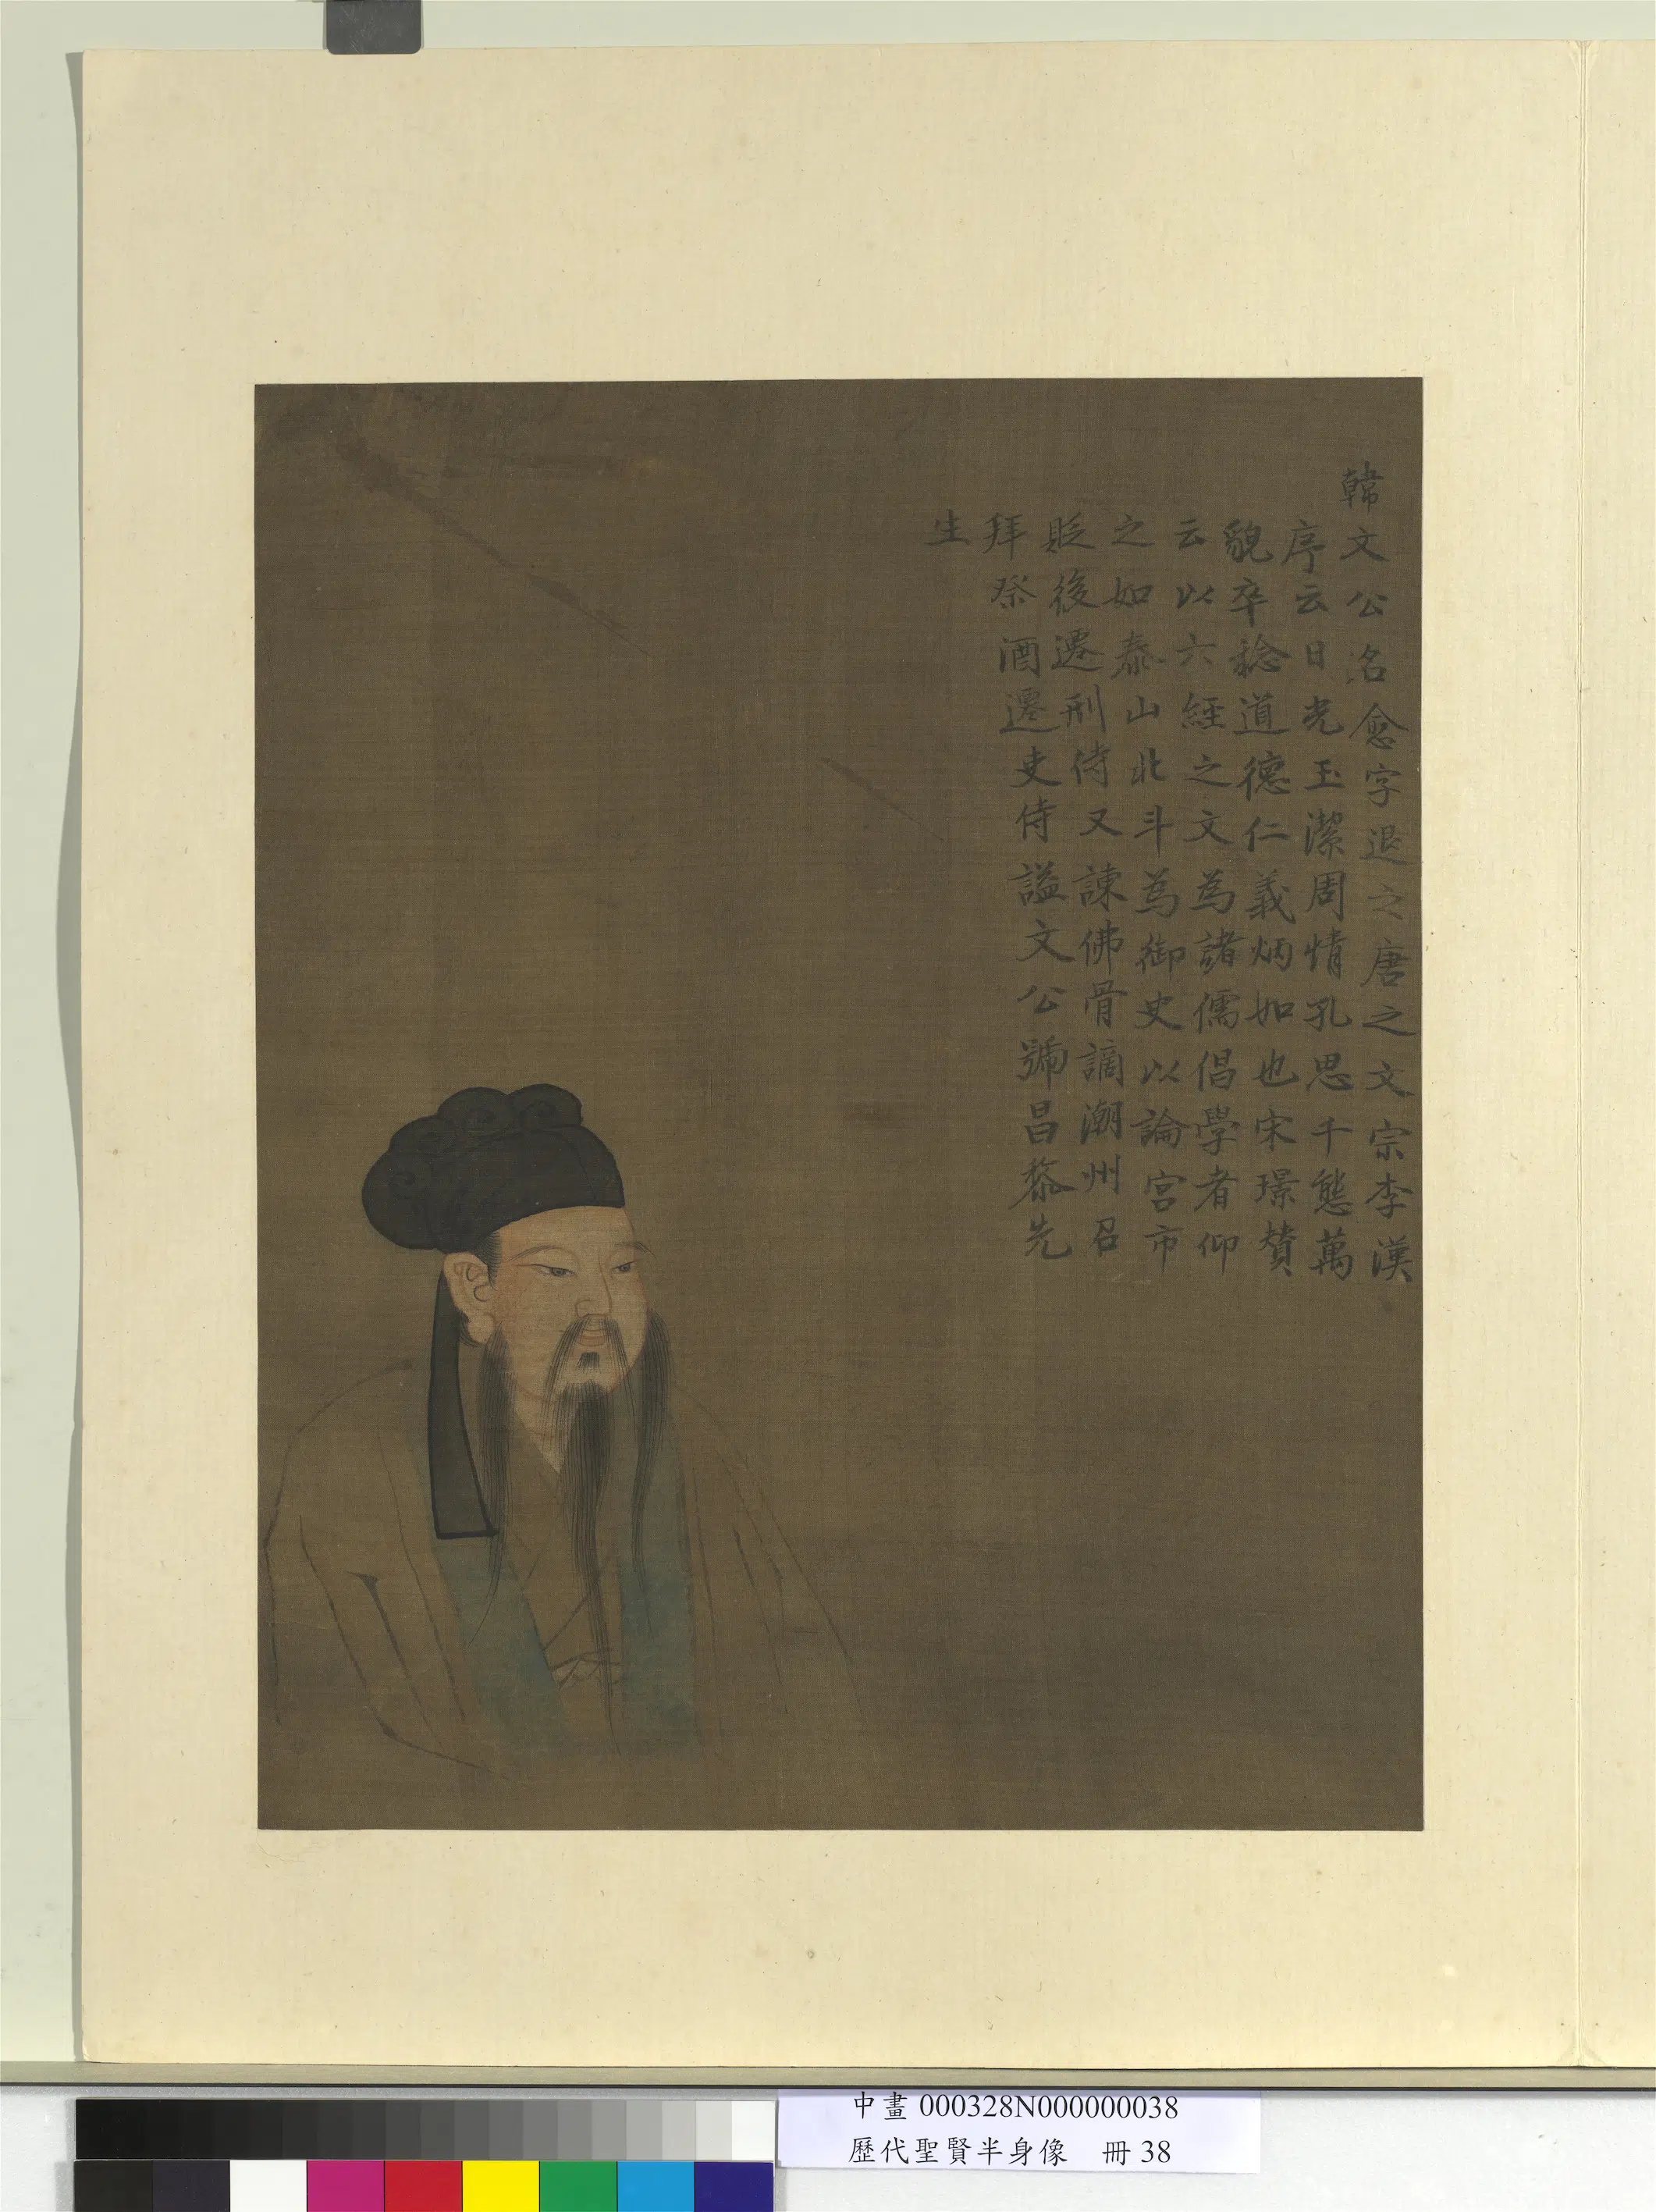 韓文公名愈字退之唐之文宗李漢
序云日光玉潔周情孔思千態萬
貌卒稔道德仁義炳如也宋璟賛
云以六經之文為諸儒倡學者仰
之如泰山北斗為御史以論宮市
貶後遷刑侍又諫佛骨謫潮州召
拜祭酒遷吏侍謚文公號昌黎先
生
中畫 000328N000000038
歷代聖賢半身像 冊 38